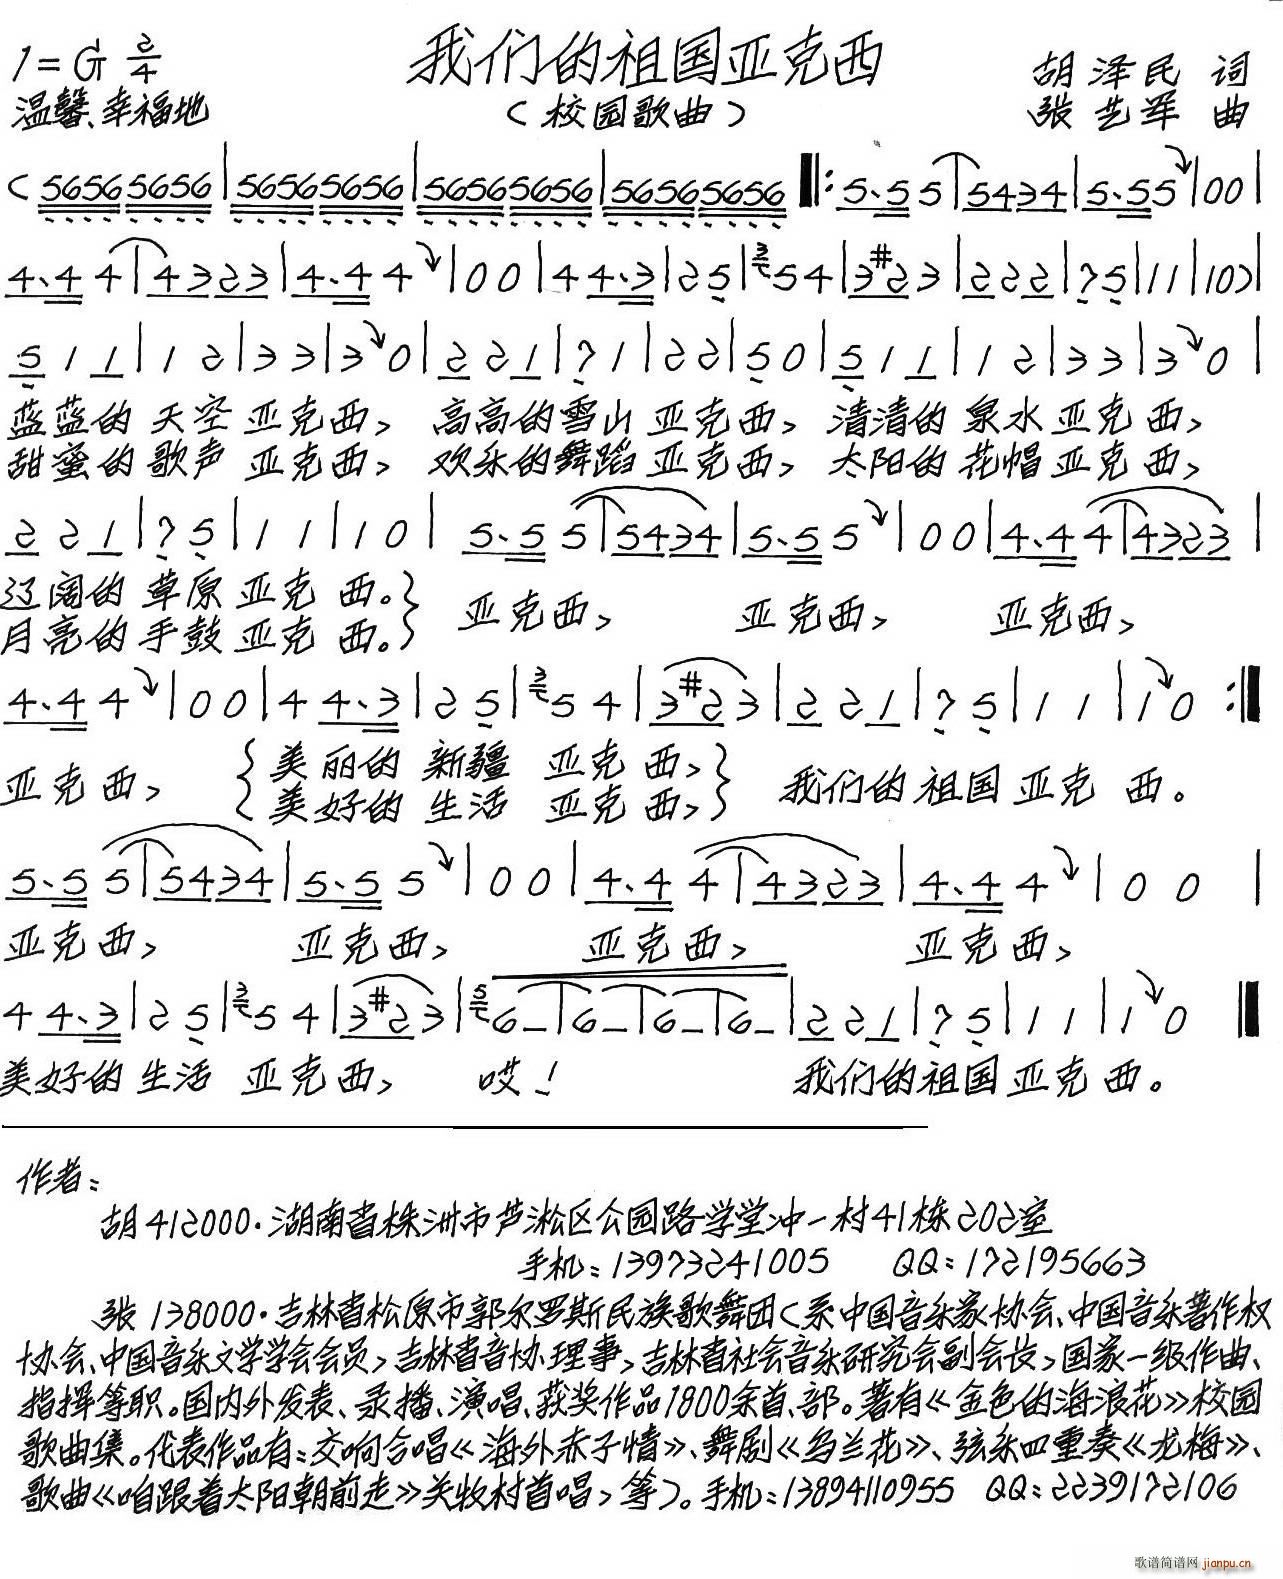 我们的祖国亚克西
1=G 2/4
胡泽民 词
温馨、幸福地
(校园歌曲)
张艺军 曲
(5656 5656|5656 5656|5656 5656|5656 5656‖:5·5 5|5434|5·5 5|00|
4·4 4|4323|4·4 4|00|4 4·3|2 5|54|3#23|222|75|11|10)|
5 1 1|1 2|3 3|3 0|2 2 1|7 1|2 2|5 0|5 1 1|1 2|3 3|3 0|
蓝蓝的 天空 亚克西, 高高的雪山 亚克西, 清清的 泉水 亚克 西,
甜蜜的 歌声 亚克西, 欢乐的舞蹈 亚克西, 太阳的 花帽 亚克 西,
2 2 1|7 5|1 1|1 0|5·5 5|5434|5·5 5|00|4·4 4|4323|
辽阔的 草原 亚克 西。} 亚克西, 亚克西, 亚克西,
月亮的 手鼓 亚克 西。}
4·4 4|00|4 4·3|2 5|5 4|3#2 3|2 2 1|7 5|1 1|1 0:‖
亚克西, {美丽的 新疆 亚克 西,} 我们的 祖国 亚克 西。
{美好的 生活 亚克 西,}
5·5 5|5434|5·5 5|00|4·4 4|4323|4·4 4|0 0|
亚克 西, 亚克 西, 亚克 西, 亚克 西,
4 4·3|2 5|5 4|3#2 3|6-|6-|6-|6-|2 2 1|7 5|1 1|1 0‖
美好的 生活 亚克西, 哎! 我们的祖国 亚克 西。
作者:
胡412000·湖南省株洲市芦淞区公园路学堂冲一村41栋202室
手机:13973241005 QQ:172195663
张 138000·吉林省松原市郭尔罗斯民族歌舞团(系中国音乐家协会、中国音乐著作权
协会、中国音乐文学学会会员,吉林省音协理事,吉林省社会音乐研究会副会长,国家一级作曲、
指挥等职。国内外发表、录播、演唱、获奖作品1800余首、部。著有《金色的海浪花》校园
歌曲集。代表作品有:交响合唱《海外赤子情》、舞剧《乌兰花》、弦乐四重奏《龙梅》、
歌曲《咱跟着太阳朝前走》关牧村首唱,等)。手机:13894110955 QQ:2239172106
歌谱简谱网 jianpu.cn